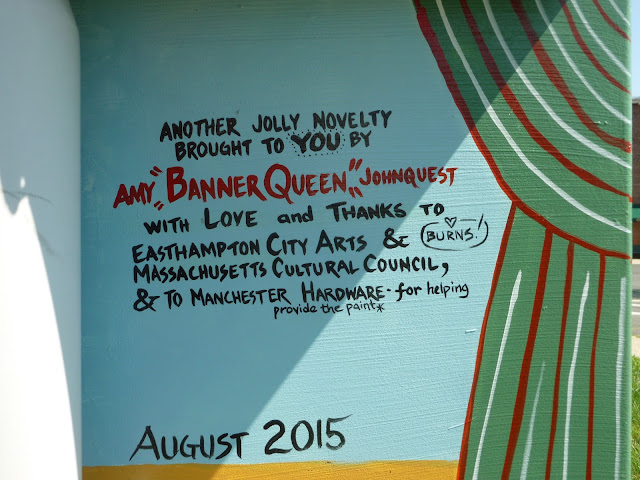 ANOTHER JOLLY NOVELTY
BROUGHT TO YOU BY
AMY "BANNERQUEEN" JOHNQUEST
WITH LOVE and THANKS TO
EASTHAMPTON CITY ARTS & BURNS!
MASSACHUSETTS CULTURAL COUNCIL,
& TO MANCHESTER HARDWARE - for helping
provide the paint*
AUGUST 2015